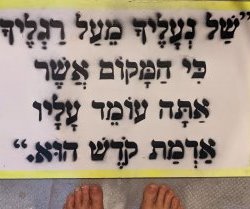 "שַׁל נְעָלֶיךָ מֵעַל רַגְלֶיךָ
כִּי הַמָּקוֹם אֲשֶׁר
אַתָּה עוֹמֵד עָלָיו
אַדְמַת קֹדֶשׁ הוּא."